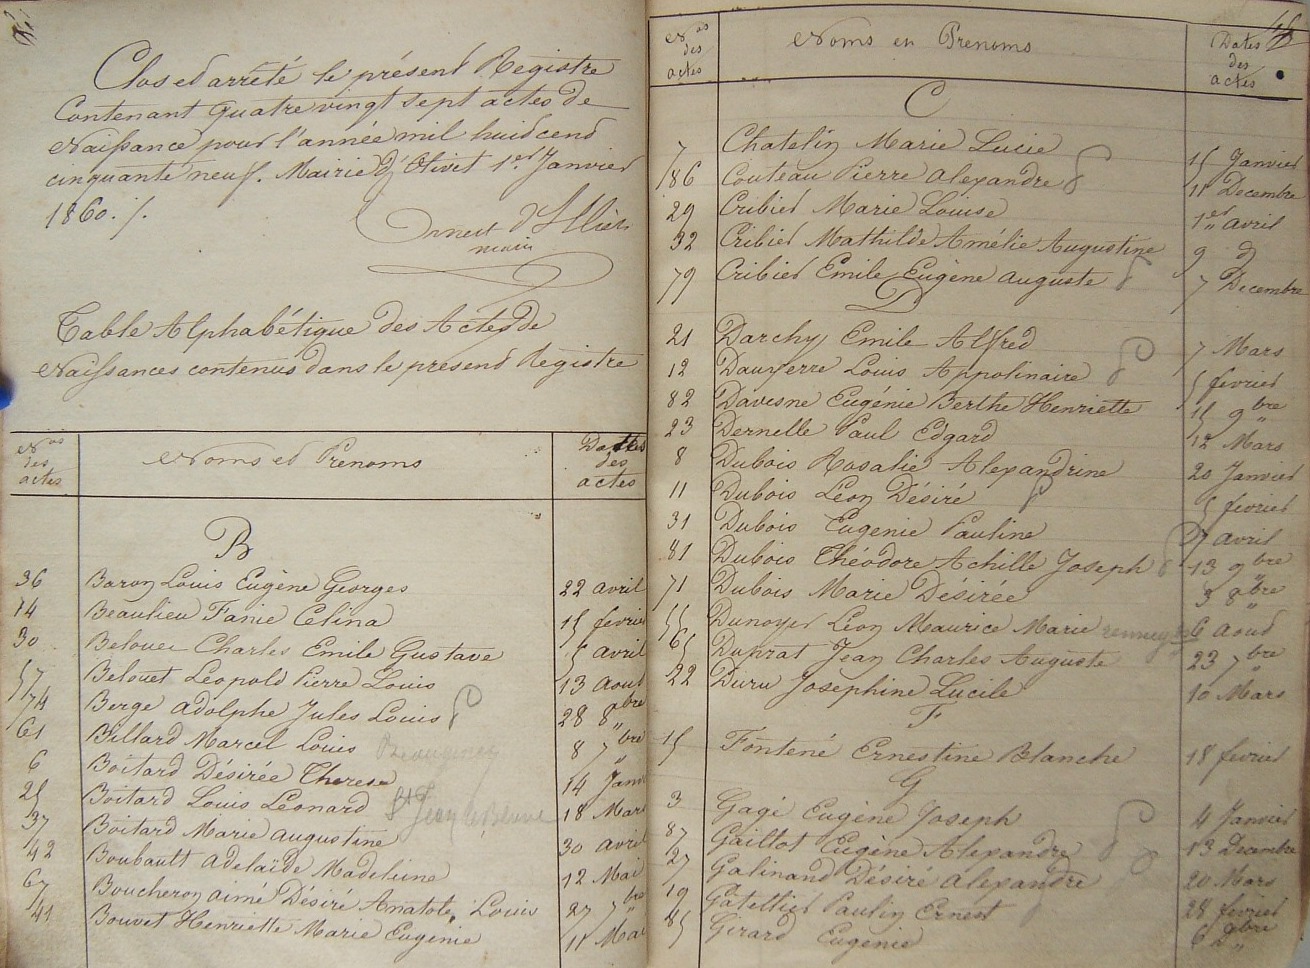 Clos et arrêté le présent Registre
Contenant quatre vingt sept actes de
Naissance pour l'année mil huit cent
cinquante neuf. Mairie d'Olivet 1er Janvier
1860. /.
Ernest d'Illiers
maire
Table Alphabétique des Actes de
Naissances contenus dans le présent Registre
Nos des actes Noms et Prenoms Dates des actes
B
36 Baron Louis Eugène Georges 22 avril
14 Beaulieu Fanie Celina 15 fevrier
30 Belouet Charles Emile Gustave 5 avril
57 Belouet Léopold Pierre Louis 13 aout
74 Berge adolphe Jules Louis 28 8bre
61 Billard Marcel Louis Beaugency 8 7bre
6 Boitard Désirée Therese 14 Janv
25 Boitard Louis Léonard St Jean 18 Mars
37 Boitard Marie augustine 30 avril
42 Boubault adelaïde Madeleine 12 Mai
67 Boucheron aimé Désiré Anatole, Louis 27 7bre
41 Bouvet Henriette Marie Eugénie 11 Mai
46
Nos des actes Noms et Prenoms Dates des actes
C
7 Chatelin Marie Lucie 15 Janvier
86 Couteau Pierre alexandre 11 Decembre
29 Cribier Marie Louise 1er avril
32 Cribier Mathilde Amélie Augustine 9 d
79 Cribier Emile Eugène auguste 7 Decembre
D
21 Darchy Emile Alfred 7 Mars
12 Dauxerre Louis Appolinaire 5 fevrier
82 Davesne Eugénie Berthe Henriette 15 9bre
23 Dernelle Paul Edgard 12 Mars
8 Dubois Rosalie Alexandrine 20 Janvier
11 Dubois Léon Désiré 5 fevrier
31 Dubois Eugenie Pauline 7 avril
81 Dubois Théodore Achille Joseph 13 9bre
71 Dubois Marie Désirée 3 8bre
55 Dunoyer Léon Maurice Marie 6 Aout
65 Duprat Jean Charles Auguste 23 7bre
22 Duru Josephine Lucile 10 Mars
F
15 Fontené Ernestine Blanche 18 fevrier
G
3 Gagé Eugène Joseph 4 Janvier
87 Gaillot Eugène Alexandre 13 Decembre
27 Galinand Désiré alexandre 20 Mars
19 Gatellier Paulin Ernest 28 fevrier
85 Girard Eugénie 6 bre